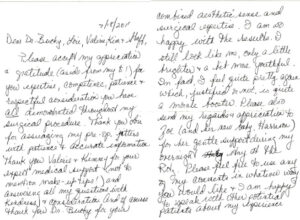 Dear Dr. Bucky, Lori, Valerie, Kim & Staff,
Please accept my appreciation
& gratitude (aside from my $!) for
your expertise, competence, patience &
respectful consideration you have
all demonstrated throughout my
surgical procedure. Thank you
for assuaging my pre-op jitters
with patience & accurate information.
Thank you Valerie & Kimmy for your
expert medical support (not to
mention make-up tips!) and
answering all my questions with
kindness & consideration. And of course
thank you Dr. Bucky for your
combined aesthetic sense and
surgical expertise. I am so
happy with the results. I
still look like me, only a little
brighter & a bit more youthful.
In fact, I feel quite pretty again
which, justified or not, is quite
a morale booster. Please also
send my regards & appreciation to
Zoe and
for her gentle support during my
overnight stay at the
Please feel free to use any
of my comments in whatever way
you would like & I am happy
to speak with other potential
patients about my experience